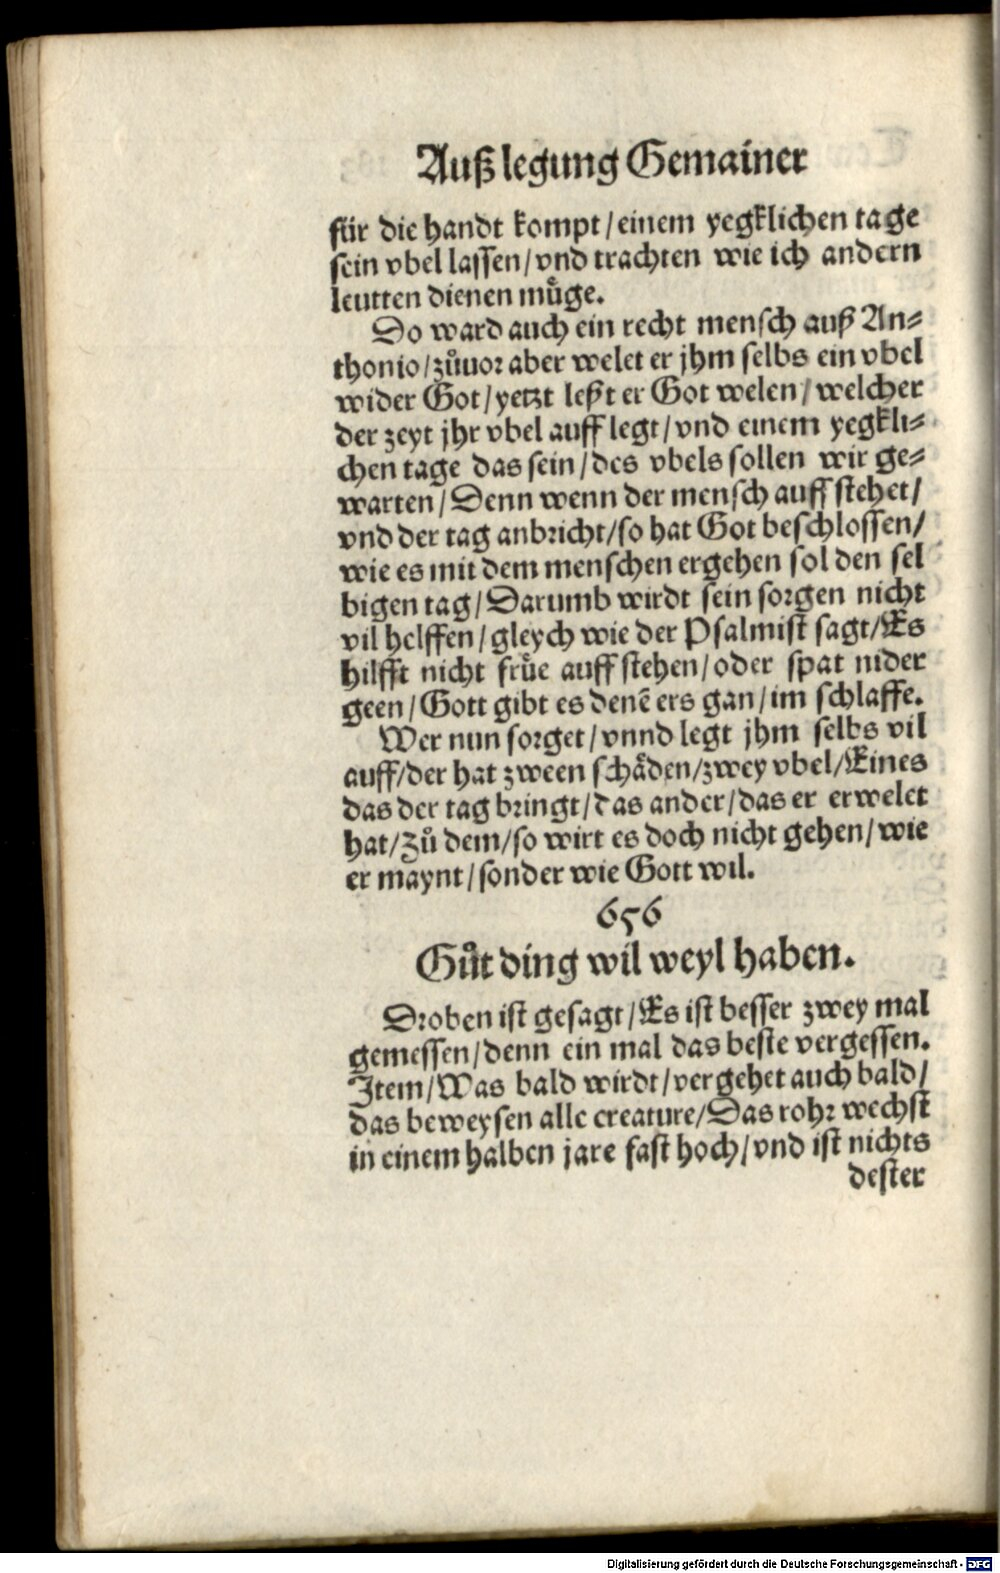 Außlegung Gemainer
für die handt kompt/einem yegklichen tage
sein vbel lassen/vnd trachten wie ich andern
leutten dienen mu᷑ge.
Do ward auch ein recht mensch auß An⸗
thonio/zůuor aber welet er jhm selbs ein vbel
wider Got/yetzt leßt er Got welen/welcher
der zeyt jhr vbel auff legt/vnd einem yegkli⸗
chen tage das sein/des vbels sollen wir ge⸗
warten/Denn wenn der mensch auff stehet/
vnd der tag anbricht/so hat Got beschlossen/
wie es mit dem menschen ergehen sol den sel
bigen tag/Darumb wirdt sein sorgen nicht
vil helffen/gleych wie der Psalmist sagt/Es
hilfft nicht fruͤe auff stehen/oder spat nider
geen/Gott gibt es denẽ ers gan/im schlaffe.
Wer nun sorget/vnnd legt jhm selbs vil
auff/der hat zween schaͤden/zwey vbel/Eines
das der tag bringt/das ander/das er erwelet
hat/Zů dem/so wirt es doch nicht gehen/wie
er maynt/sonder wie Gott wil.
656
Gůt ding wil weyl haben.
Droben ist gesagt/Es ist besser zwey mal
gemessen/denn ein mal das beste vergessen.
Item/Was bald wirdt/vergehet auch bald/
das beweysen alle creature/Das rohr wechst
in einem halben jare fast hoch/vnd ist nichts
dester
Digitalisierung gefördert durch die Deutsche Forschungsgemeinschaft - DFG